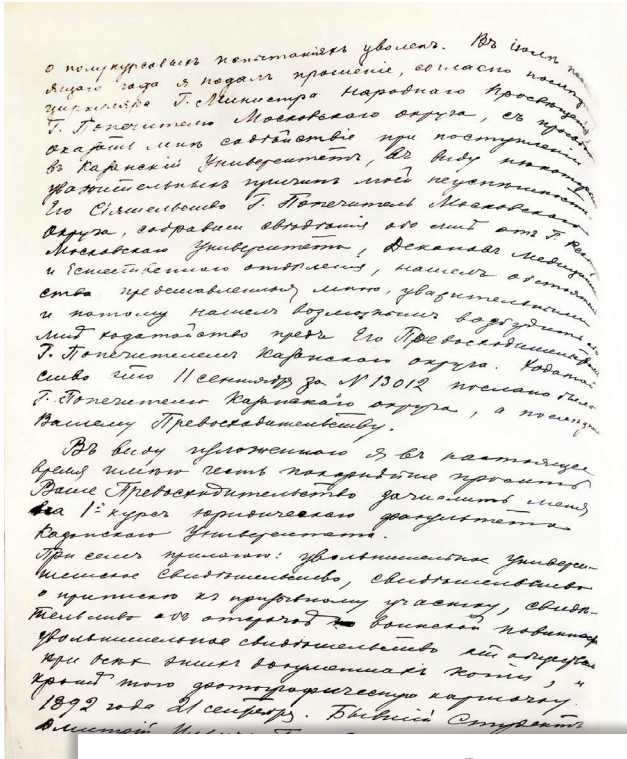 о полукурсовыхъ испытаніяхъ уволенъ. Въ іюлѣ
года я подалъ прошеніе, согласно
циркуляра Г. Министра Народнаго Просвѣщенія,
Г. Попечителю Московскаго округа, съ
оказать мнѣ содѣйствіе при поступленіи
въ Казанскій Университетъ, въ виду
уважительныхъ причинъ моей неуспѣшности.
Его Сіятельство Г. Попечитель Московскаго
Округа, собравши свѣдѣнія обо мнѣ отъ Г.
Московскаго Университета, Декановъ
и Естественнаго отдѣленія, нашелъ
ства представленныя мною, уважительными
и потому нашелъ возможнымъ возбудить
мнѣ ходатайство предъ Его Превосходительствомъ
Г. Попечителемъ Казанскаго округа. Ходатай
ство это 11 сентября за № 13012 послано было
Г. Попечителю Казанскаго округа, а
Вашему Превосходительству.
Въ виду изложеннаго я въ настоящее
время имѣю честь покорнѣйше просить
Ваше Превосходительство зачислить меня
на 1й курсъ юридическаго факультета
Казанскаго Университета.
При семъ прилагаю: увольнительное универси-
тетское свидѣтельство, свидѣтельство
о припискѣ къ призывному участку, свидѣ-
тельство объ отсрочкѣ воинской повинности
увольнительное свидѣтельство отъ общества
при всѣхъ этихъ документахъ копіи, и
кромѣ того фотографическую карточку.
1892 года 21 сентября. Бывшій Студентъ
Дмитрій